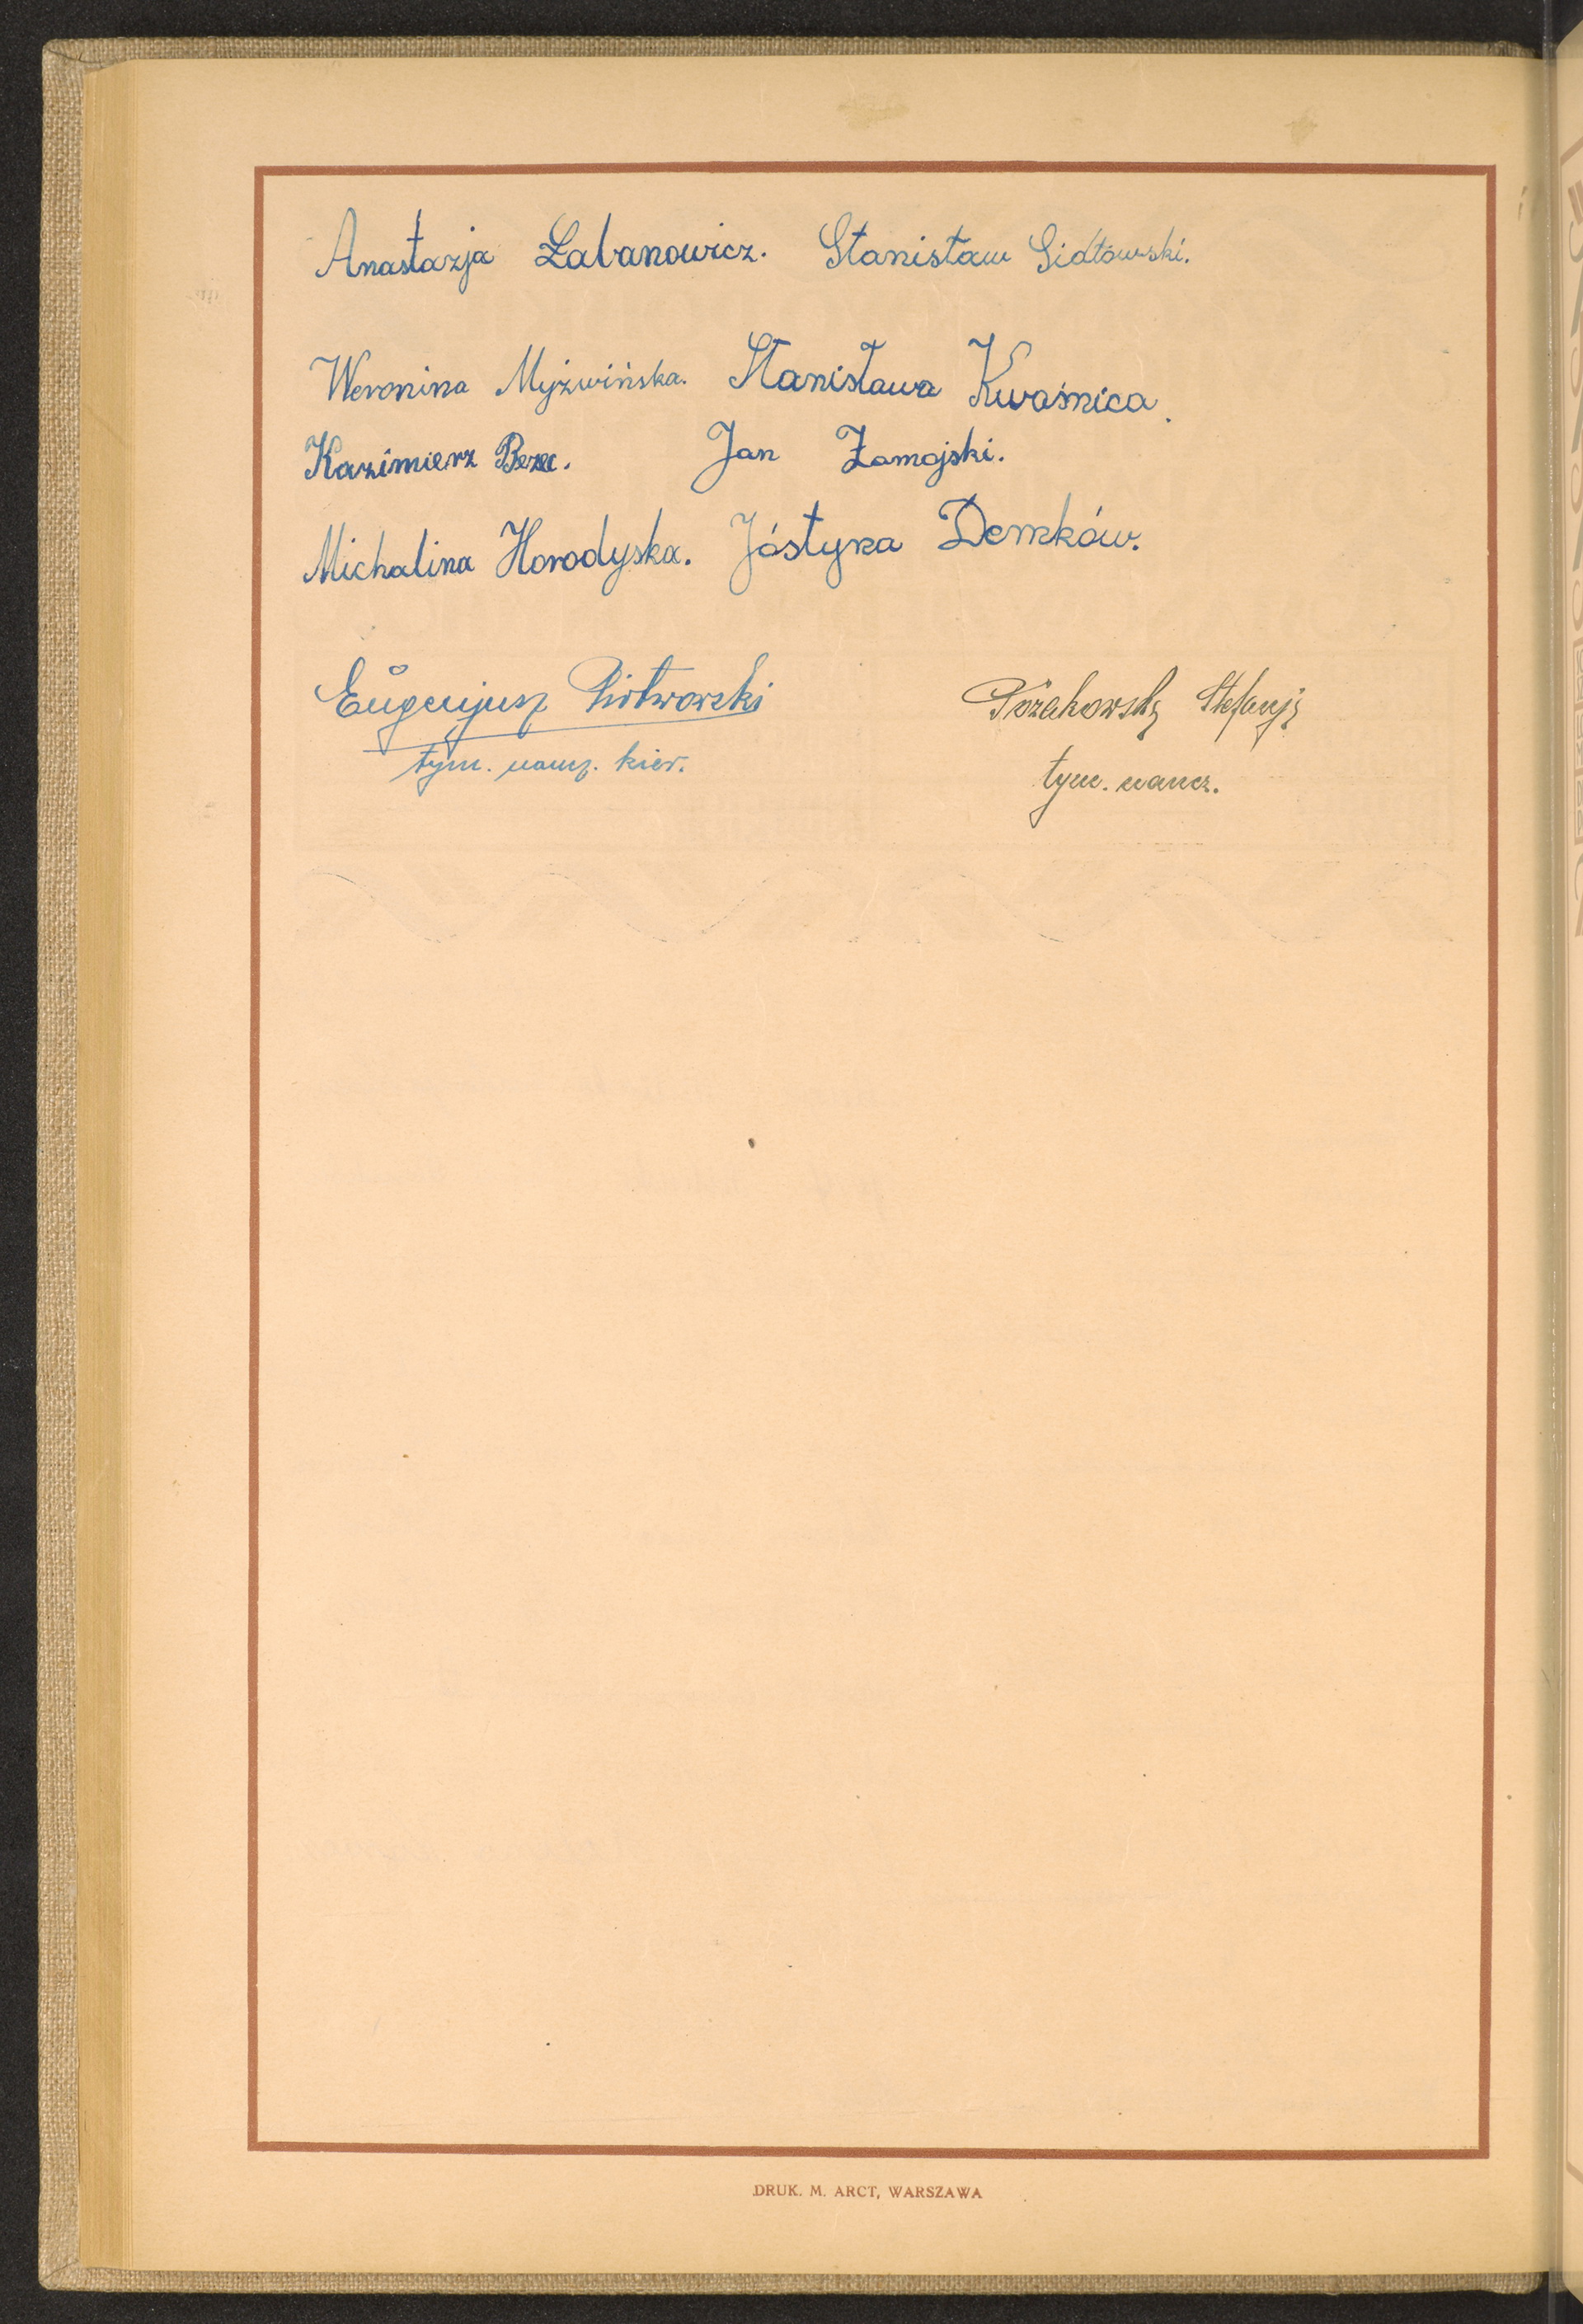 Anastazja Łabanowicz. Stanisław Sidłowski.
Weronina Myźwińska. Stanisława Kwaśnica.
Kazimierz Bezec. Jan Zamojski.
Michalina Horodyska. Jóstyna Demków.
Eugenjusz Piotrowski
tym. naucz. kier.
Stefanja
tym. naucz.
DRUK. M. ARCT, WARSZAWA